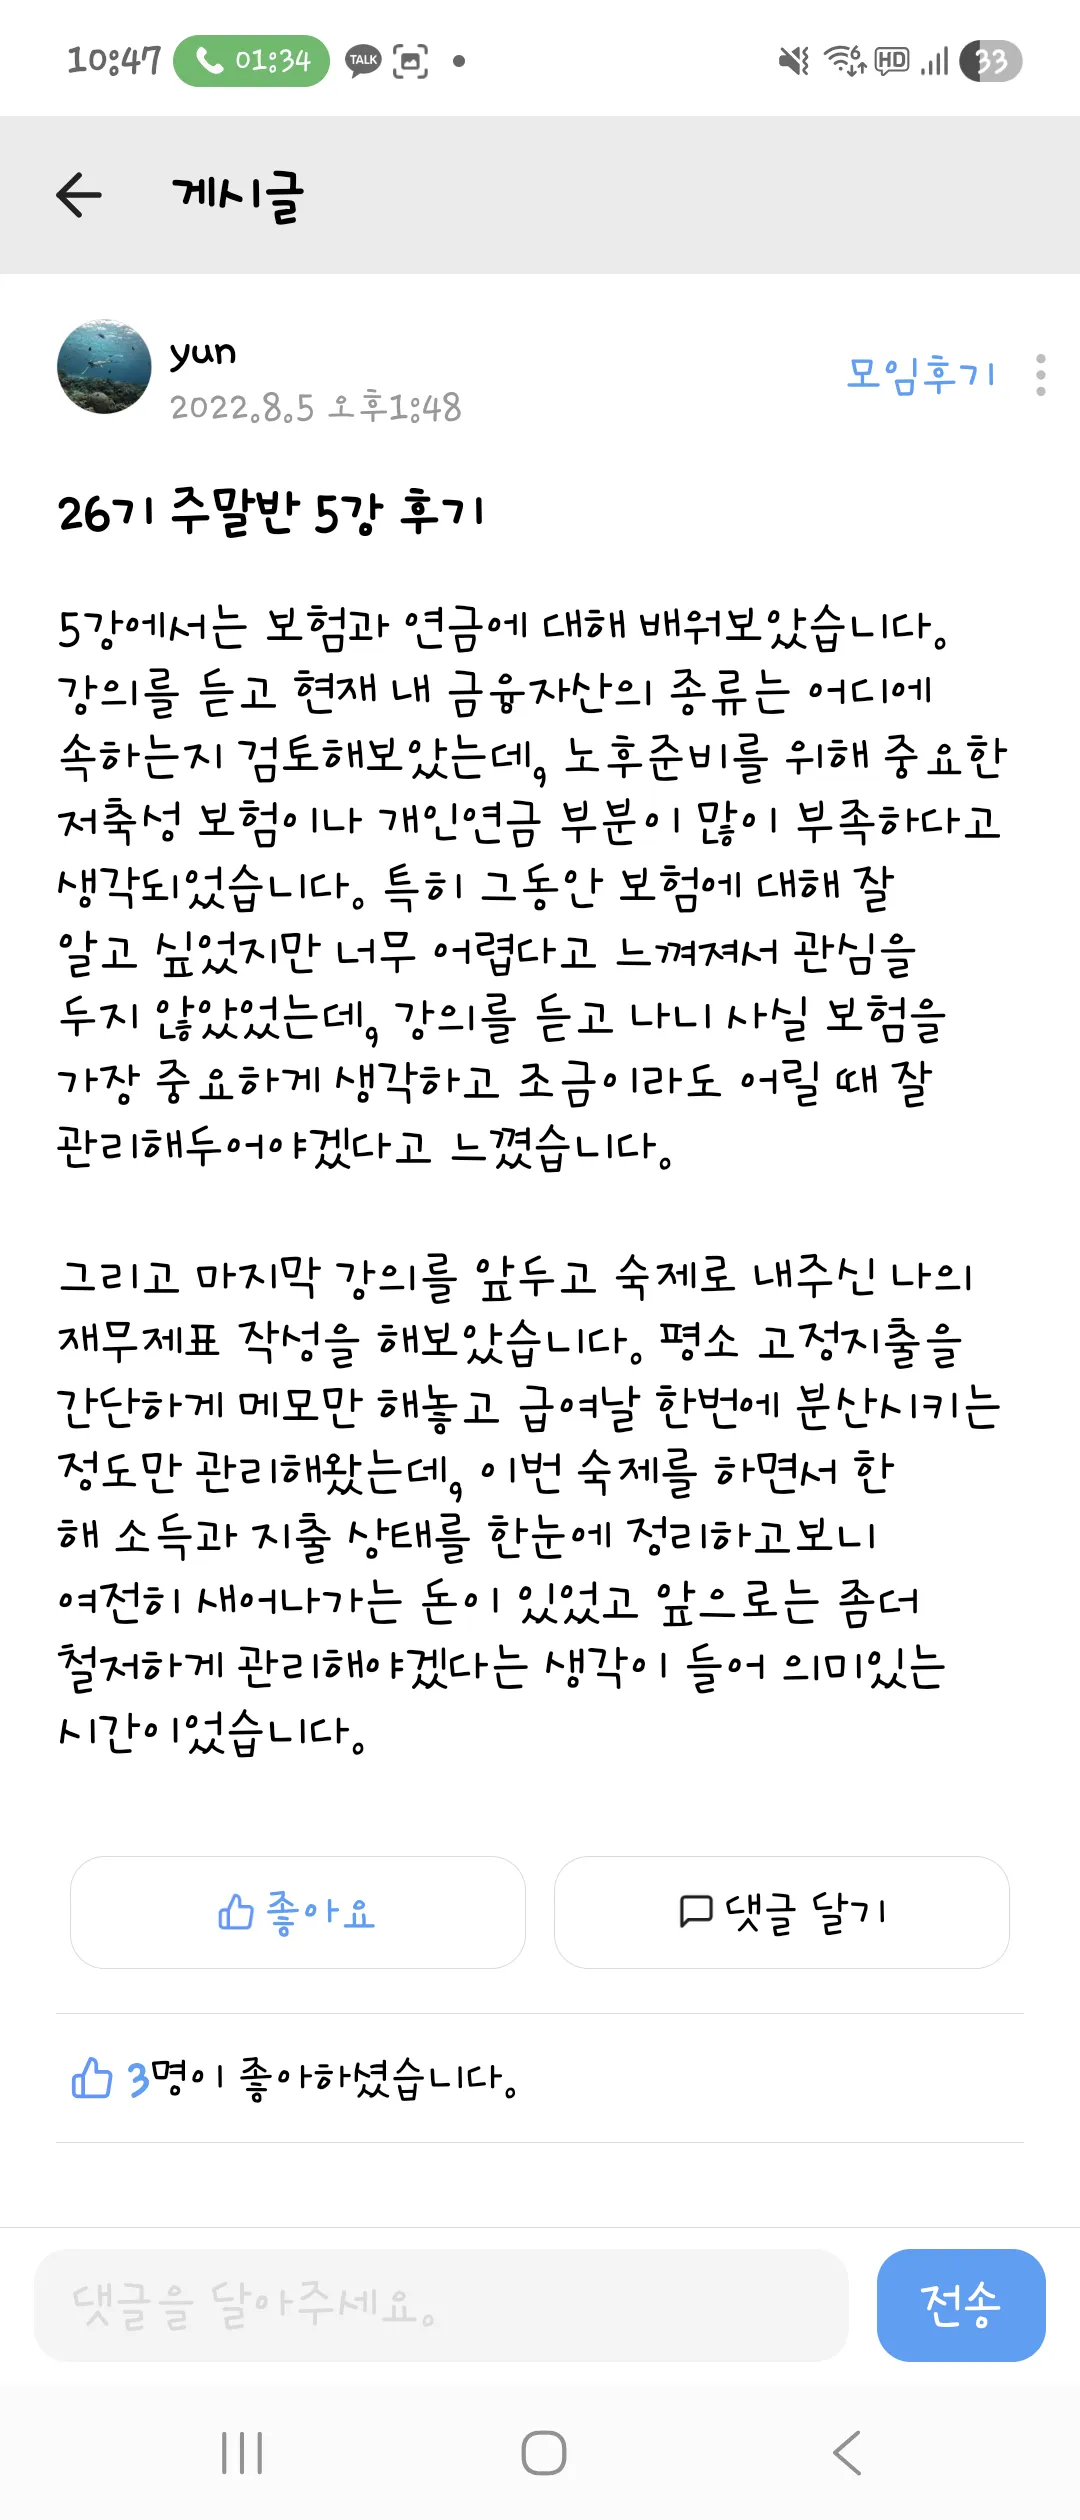 10:47 01:34 TALK 6 HD 33
게시글
yun
2022.8.5 오후1:48
모임후기
26기 주말반 5강 후기
5강에서는 보험과 연금에 대해 배워보았습니다.
강의를 듣고 현재 내 금융자산의 종류는 어디에
속하는지 검토해보았는데, 노후준비를 위해 중요한
저축성 보험이나 개인연금 부분이 많이 부족하다고
생각되었습니다. 특히 그동안 보험에 대해 잘
알고 싶었지만 너무 어렵다고 느껴져서 관심을
두지 않았었는데, 강의를 듣고 나니 사실 보험을
가장 중요하게 생각하고 조금이라도 어릴 때 잘
관리해두어야겠다고 느꼈습니다.
그리고 마지막 강의를 앞두고 숙제로 내주신 나의
재무제표 작성을 해보았습니다. 평소 고정지출을
간단하게 메모만 해놓고 급여날 한번에 분산시키는
정도만 관리해왔는데, 이번 숙제를 하면서 한
해 소득과 지출 상태를 한눈에 정리하고보니
여전히 새어나가는 돈이 있었고 앞으로는 좀더
철저하게 관리해야겠다는 생각이 들어 의미있는
시간이었습니다.
좋아요
댓글 달기
3명이 좋아하셨습니다.
댓글을 달아주세요.
전송